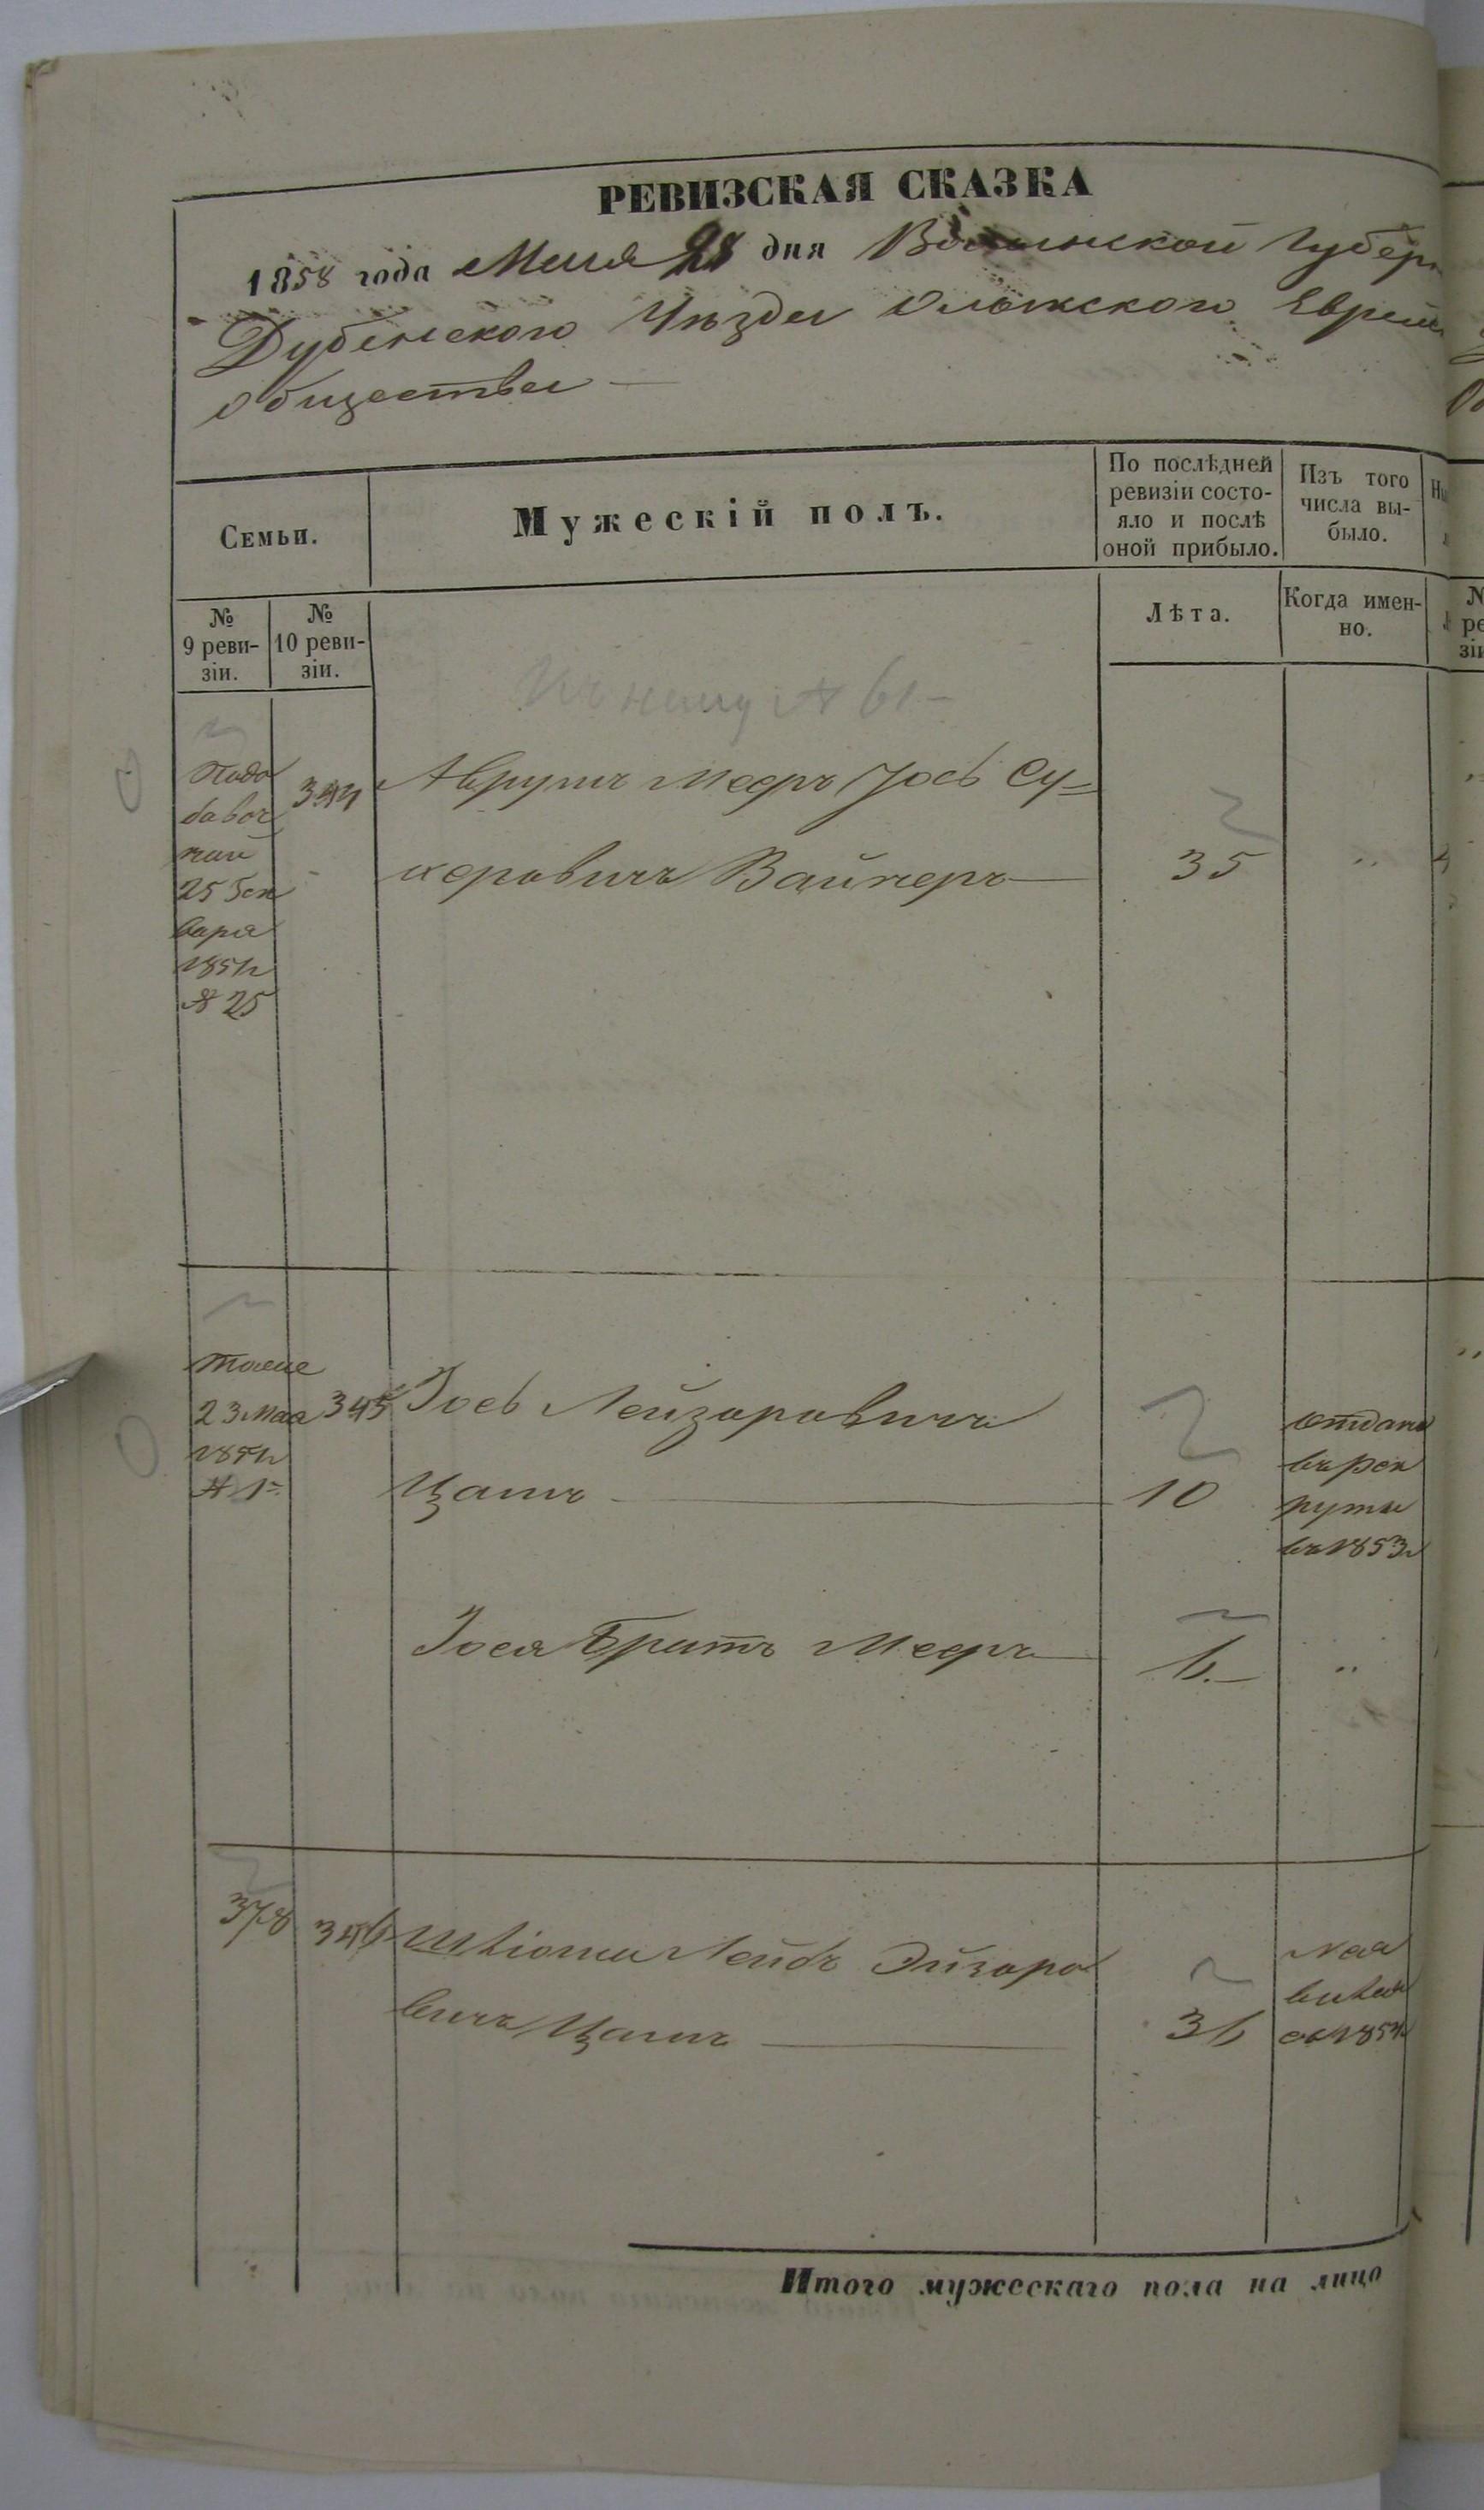 РЕВИЗСКАЯ СКАЗКА
1858 года Мая 28 дня Волынской Губер
Дубенского Уѣзда Олыкского Еврей
общества
Семьи.
Мужескій полъ.
По послѣдней ревизіи состо-
яло и послѣ
оной прибыло.
Изъ того
числа вы-
было.
№
9 реви-
зіи.
№
10 реви-
зіи.
Лѣта.
Когда имен-
но.
№ 61
бавоч
25 Ген
варя
185
№ 25
344
Аврумъ Мееръ Іосъ Су=
керовичъ Вайнеръ
35
тоже
23 Мая
№ 1
345
Іось Лейзоровичъ
Цамъ
10
отданъ
въ рек
руты
въ 1853
Іося Братъ Мееръ
6
378
346
Лейбъ Эйзоро
вичъ Цамъ
36
Итого мужескаго пола на лицо